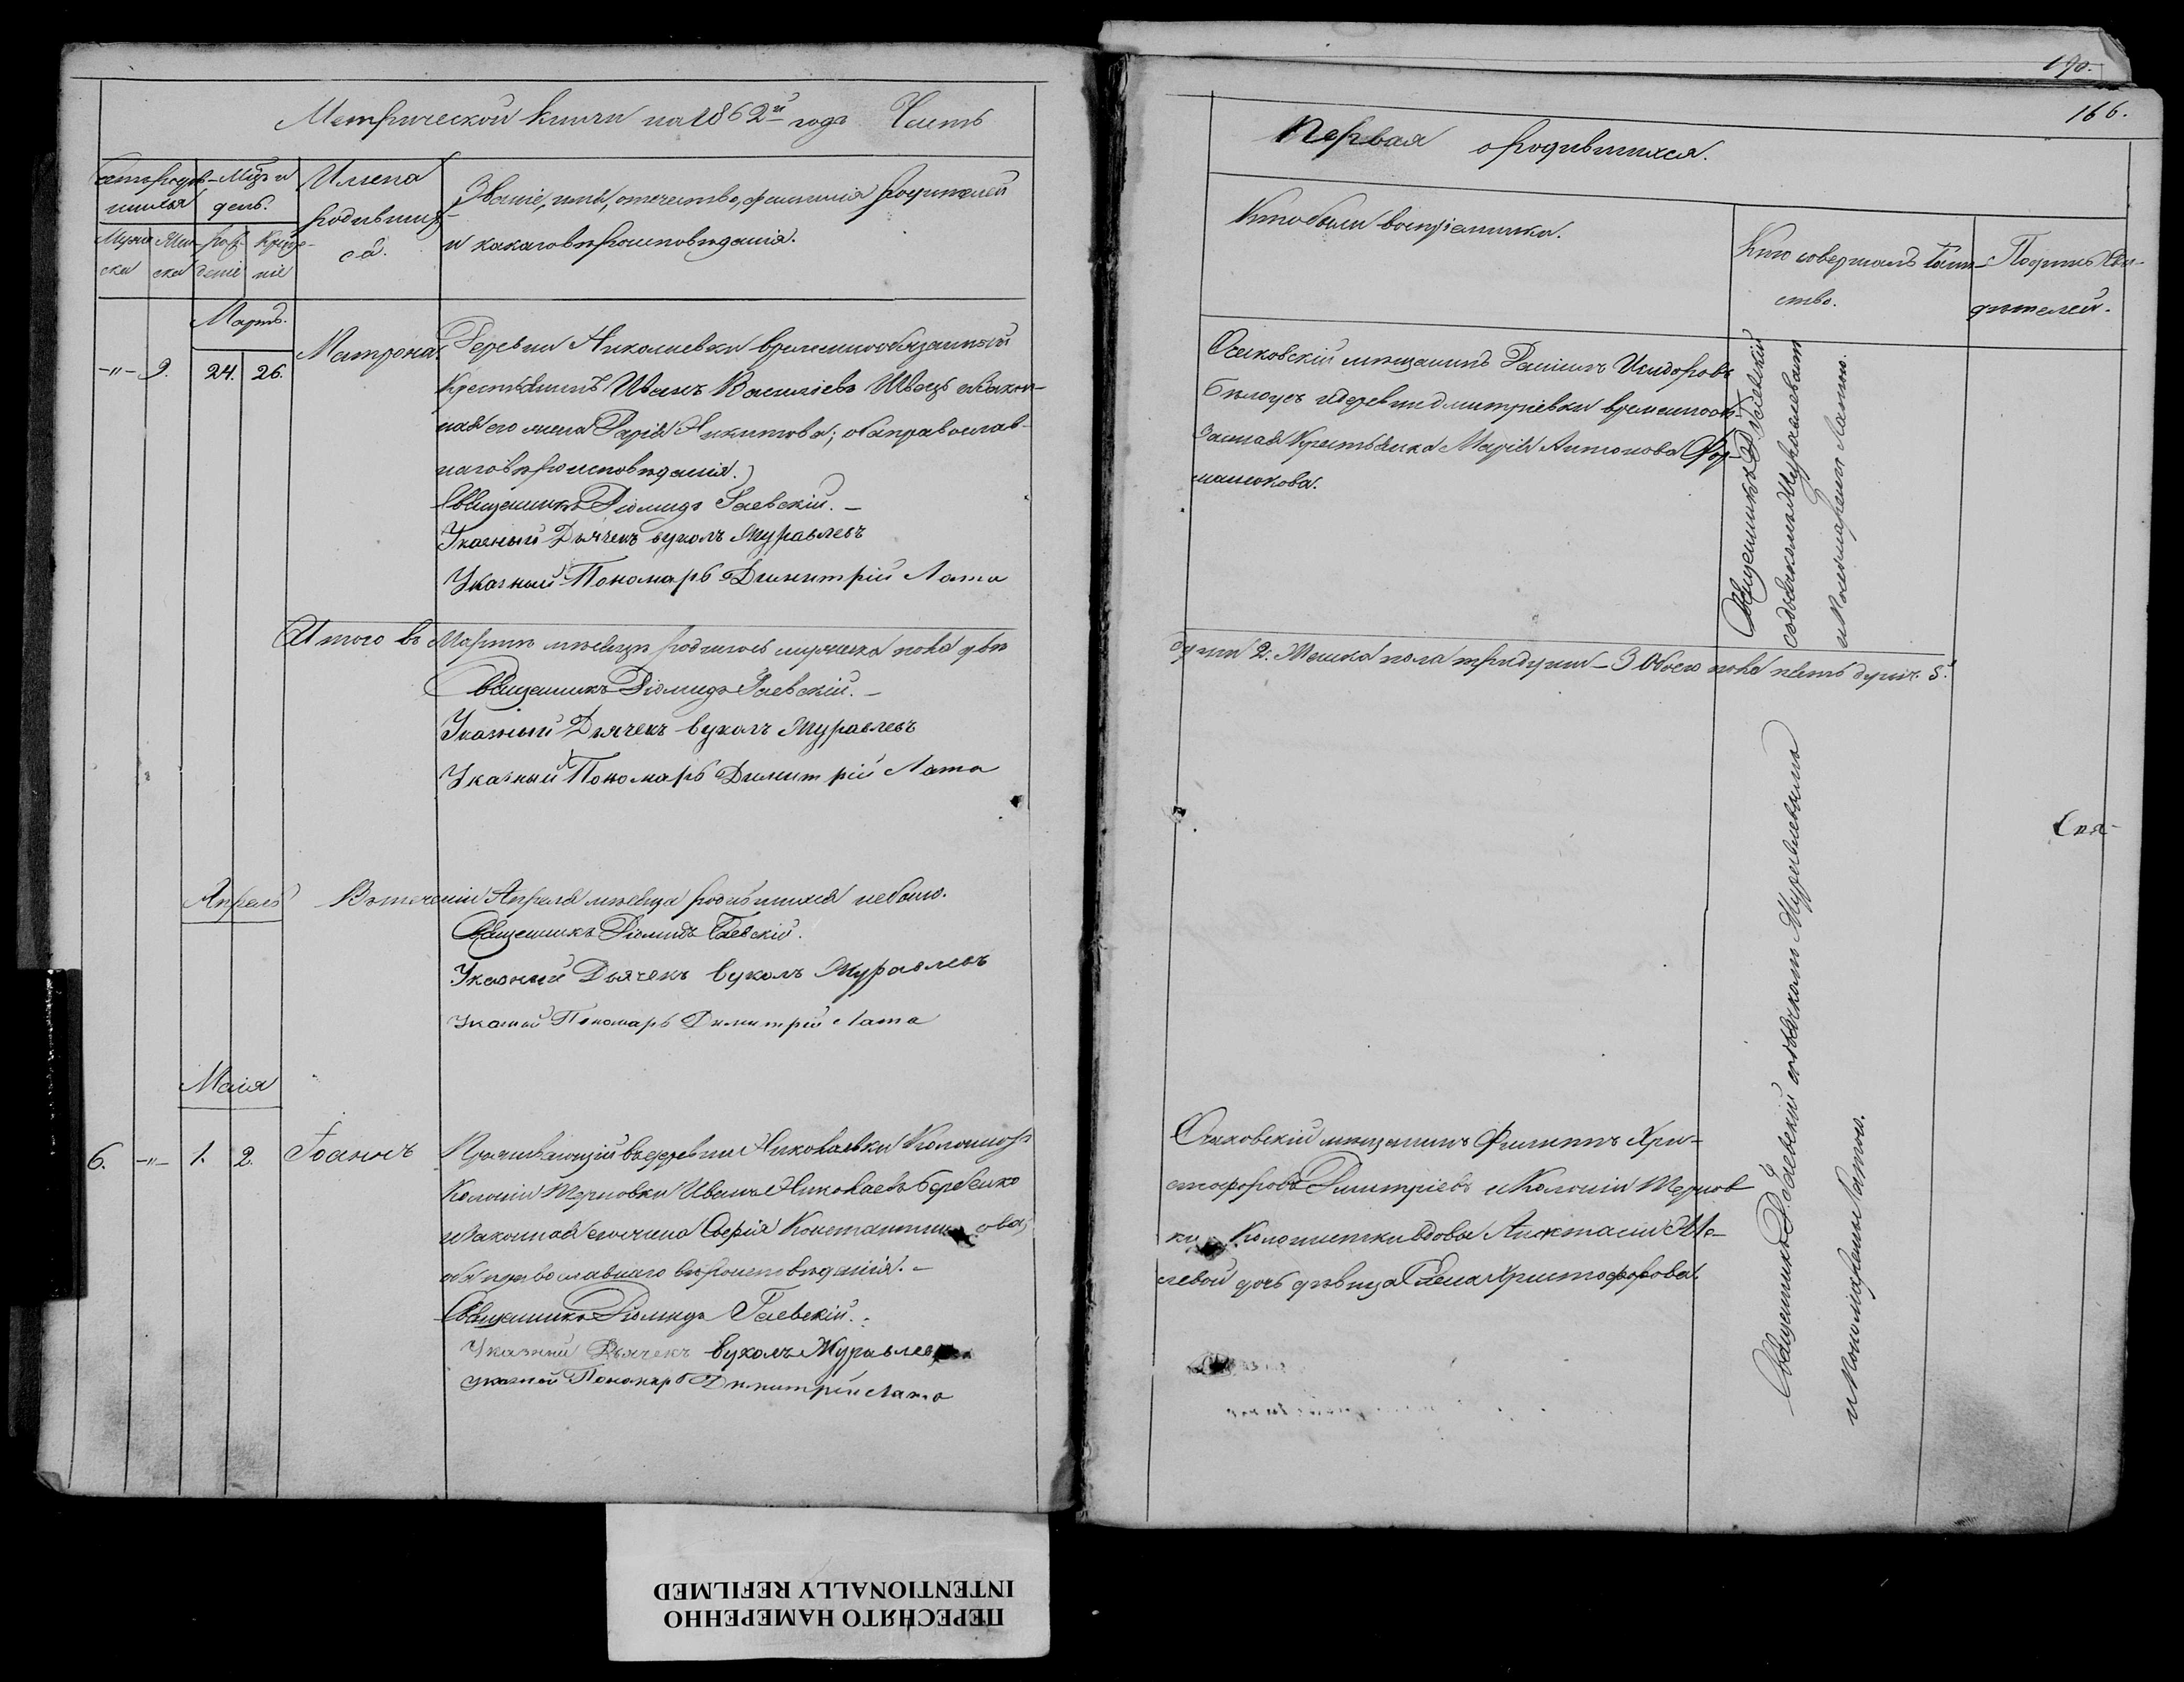 Метрической книги на 1862й годъ Часть
Счетъ родив-
шихся
Мѣц. и
день.
Имена
родивших-
ся.
Званіе, имя, отечество, фамилія родителей
и какаго вѣроисповѣданія.
Муже
ска
Жен-
ска
рож-
деніе
креще-
ніе
Мартъ.
-"- 9. 24. 26. Матрона.
Деревни Николаевки временнообязанный
Крестьянинъ Иванъ Василіевъ Швецъ и закон-
ная его жена Дарія Никитова; оба православ-
наго вѣроисповѣданія.
Священникъ Діомидъ Гаевскій.-
Указный Дьячекъ Вуколъ Муравлевъ
Указный Пономарь Димитрій Лата
Итого въ Мартѣ мѣсяцѣ родилось мужеска пола двѣ
Священникъ Діомидъ Гаевскій.-
Указный Дьячекъ Вуколъ Муравлевъ
Указный Пономарь Димитрій Лата
Апрель
Въ теченіи Апреля мѣсяца родившихся небыло.
Священникъ Діомидъ Гаевскій.
Указный Дьячекъ Вуколъ Муравлевъ
Указный Пономарь Димитрій Лата
Маія
6. -"- 1. 2. Іоаннъ
Проживающій въ деревни Николаевки Колонистъ
Колоніи Терновки Иванъ Николаевъ
и законная его жена Софія Константинова;
оба православнаго вѣроисповѣданія.-
Священникъ Діомидъ Гаевскій.
Указный Дьячекъ Вуколъ Муравлевъ
Указный Пономарь Димитрій Лата
190.
166.
Первая о родившихся.
Кто были воспріемники.
Кто совершалъ таин-
ство.
Подпись сви-
дѣтелей.
Очаковскій мѣщанинъ Даніилъ Исидоровъ
Бѣлоусъ и деревни Дмитріевки временнообя-
занная Крестьянка Марія Антонова
Священникъ Д. Гаевскій
съ дьячкомъ Муравлевымъ
и Пономаремъ Латою.
души 2. Женска пола три души - 3 Обоего пола пять душъ. 5.
Свя-
Очаковскій мѣщанинъ Филиппъ Хри-
стофоровъ Димитріевъ и Колоніи Тернов
ки Колонистки вдовы Анастасіи
дочь дѣвица Елена Христофорова.
Священникъ Д. Гаевскій съ дьячкомъ Муравлевымъ
и Пономаремъ Латою.
ПЕРЕСНЯТО НАМЕРЕННО
INTENTIONALLY REFILMED